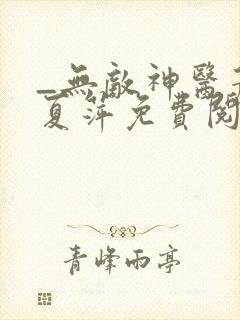 _無敵神醫
夏萍免費閱
青峰雨亭